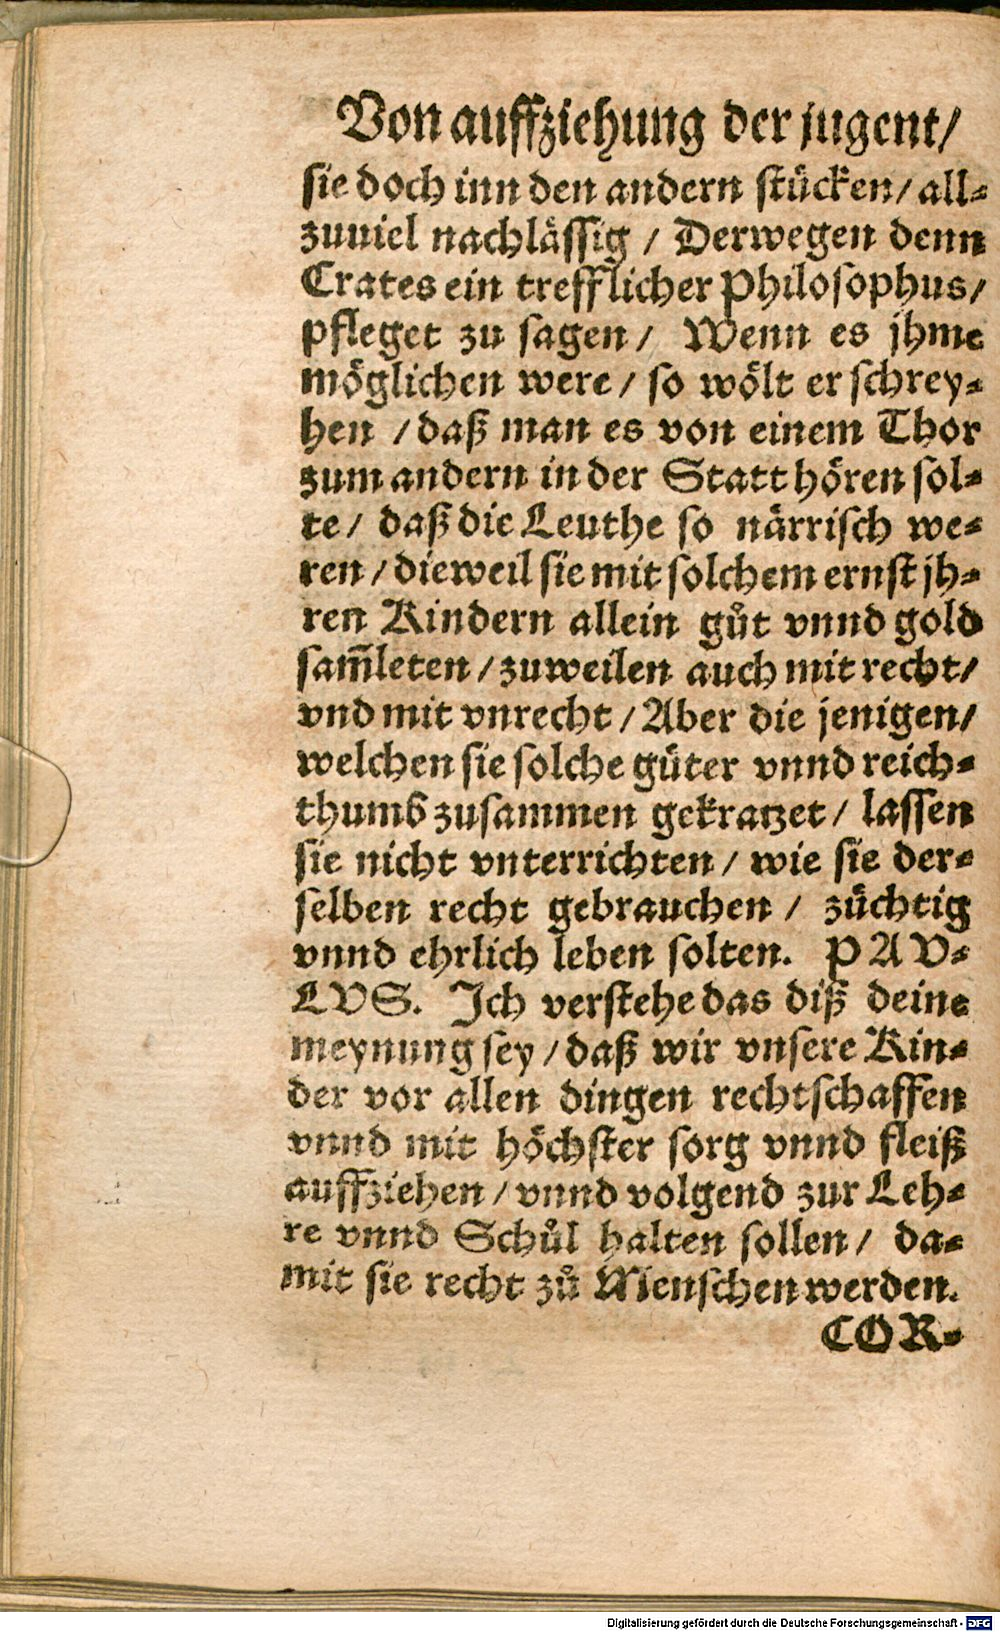 Von auffziehung der jugent/
sie doch inn den andern stücken/ all-
zuuiel nachlässig / Derwegen denn
Crates ein trefflicher Philosophus/
pfleget zu sagen / Wenn es jhme
möglichen were / so wölt er schrey-
hen / daß man es von einem Thor
zum andern in der Statt hören sol-
te / daß die Leuthe so närrisch we-
ren / dieweil sie mit solchem ernst jh-
ren Kindern allein gůt vnnd gold
sam̃leten / zuweilen auch mit recht/
vnd mit vnrecht / Aber die jenigen/
welchen sie solche güter vnnd reich-
thumb zusammen gekratzet / lassen
sie nicht vnterrichten / wie sie der-
selben recht gebrauchen / züchtig
vnnd ehrlich leben solten. PAV-
LVS. Ich verstehe das diß deine
meynung sey / daß wir vnsere Kin-
der vor allen dingen rechtschaffen
vnnd mit höchster sorg vnnd fleiß
auffziehen / vnnd volgend zur Leh-
re vnnd Schůl halten sollen / da-
mit sie recht zů Menschen werden.
COR-
Digitalisierung gefördert durch die Deutsche Forschungsgemeinschaft - DFG